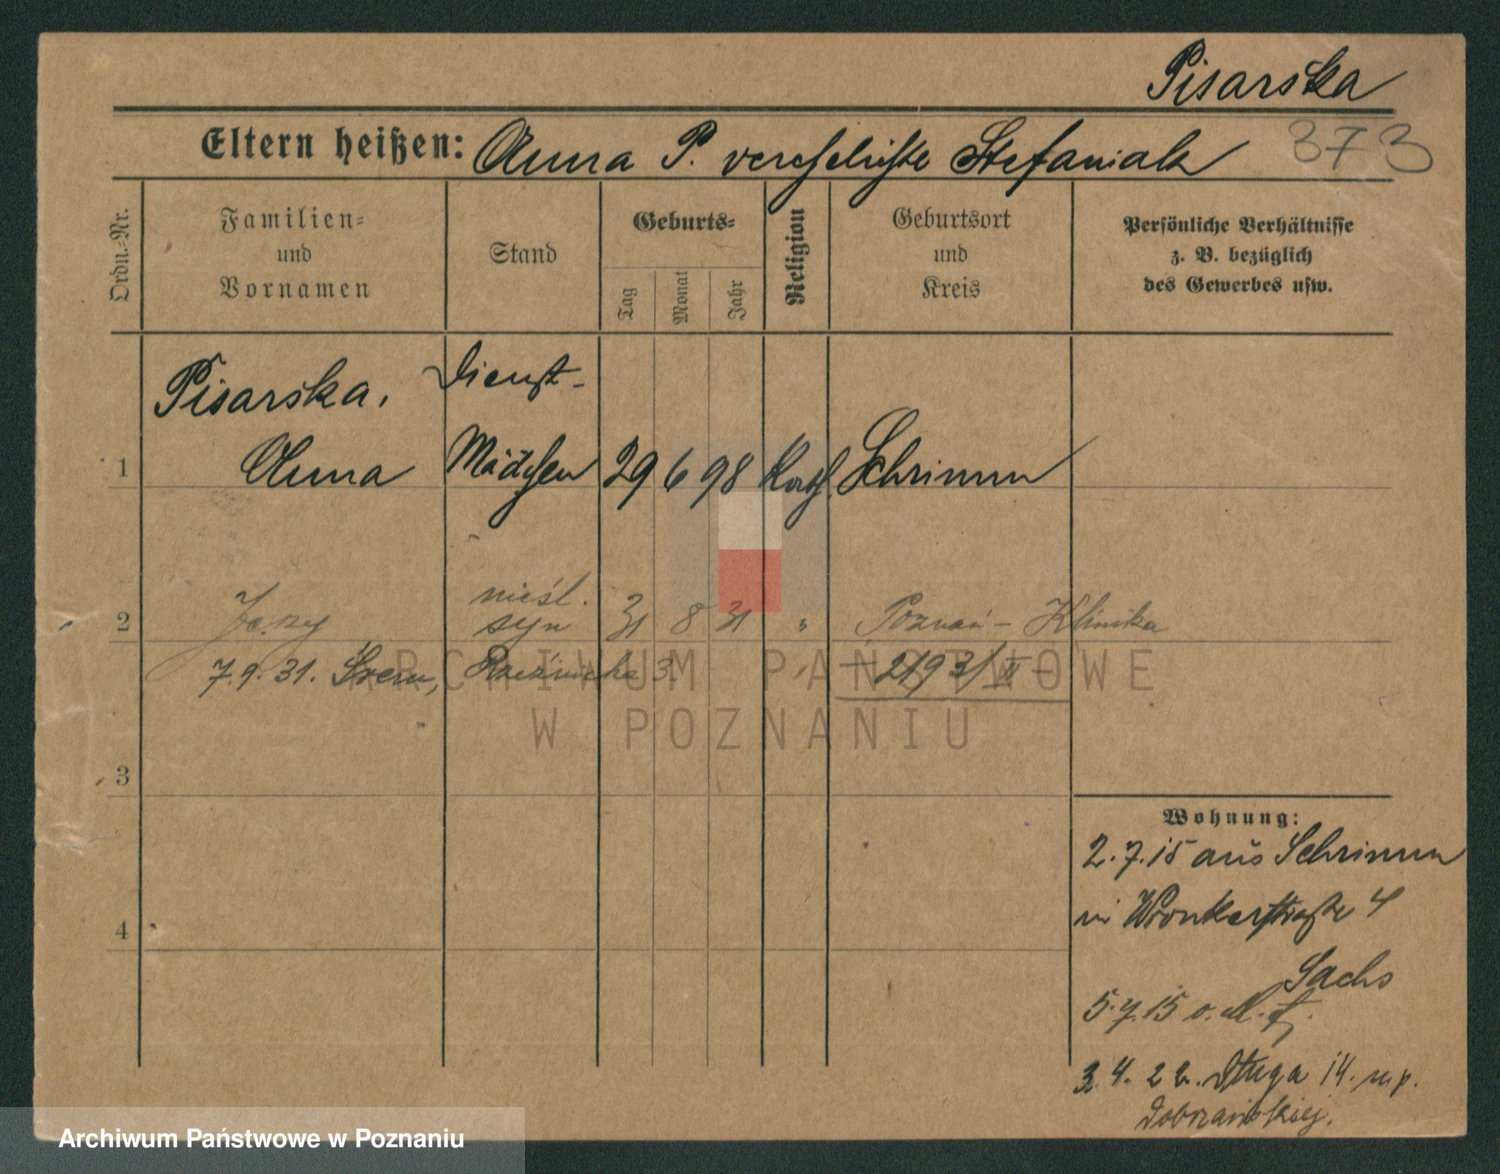 Pisarska
Eltern heißen: Anna P. verehelichte Stefaniak 373
Ordn.=Nr.
Familien=
und
Vornamen
Stand
Geburts=
Tag
Monat
Jahr
Religion
Geburtsort
und
Kreis
Persönliche Verhältnisse
z. B. bezüglich
des Gewerbes usw.
Pisarska, Dienst-
1 Anna Mädchen 29 6 98 Kath. Schrimm
nieśl.
2 Jerzy syn 31 8 31 " Poznań - Klinika
7.9.31. Śrem, Rzeźnicka 3. 2193/II
ARCHIWUM PAŃSTWOWE
W POZNANIU
3
Wohnung:
2.7.15 aus Schrimm
in Wronkerstraße 4
4
Sachs
5.7.15 o. M. f.
3.4.22. Długa 14. u p.
Dobrzańskiej.
Archiwum Państwowe w Poznaniu